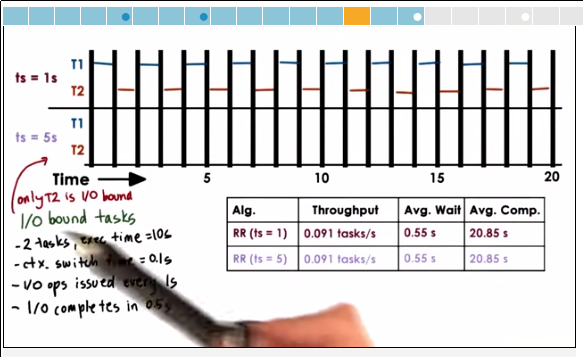 T1
ts = 1s
T2
T1
ts = 5s
T2
Time 5 10 15 20
only T2 is I/O bound
I/O bound tasks
- 2 tasks, exec time = 10s
- ctx. switch time = 0.1s
- I/O ops issued every 1s
- I/O completes in 0.5s
Alg. Throughput Avg. Wait Avg. Comp.
RR (ts = 1) 0.091 tasks/s 0.55 s 20.85 s
RR (ts = 5) 0.091 tasks/s 0.55 s 20.85 s